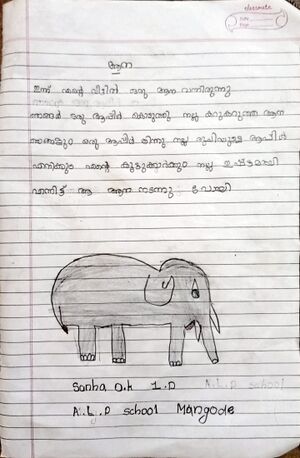 classmate
Date
Page
ആന
ഇന്ന് എന്റെ വീട്ടിൽ ഒരു ആന വന്നിരുന്നു
ഞങ്ങൾ ഒരു ആപ്പിൾ കൊടുത്തു നല്ല കറുകറുത്ത ആന
ഞങ്ങളും ഒരു ആപ്പിൾ തിന്നു നല്ല രുചിയുള്ള ആപ്പിൾ
എനിക്കും എന്റെ കൂട്ടുക്കാർക്കും നല്ല ഇഷ്ടമായി
എന്നിട്ട് ആ ആന നടന്നു പോയി
Sonha O.k 1.D A.L.P school
A.L.P school Mangode